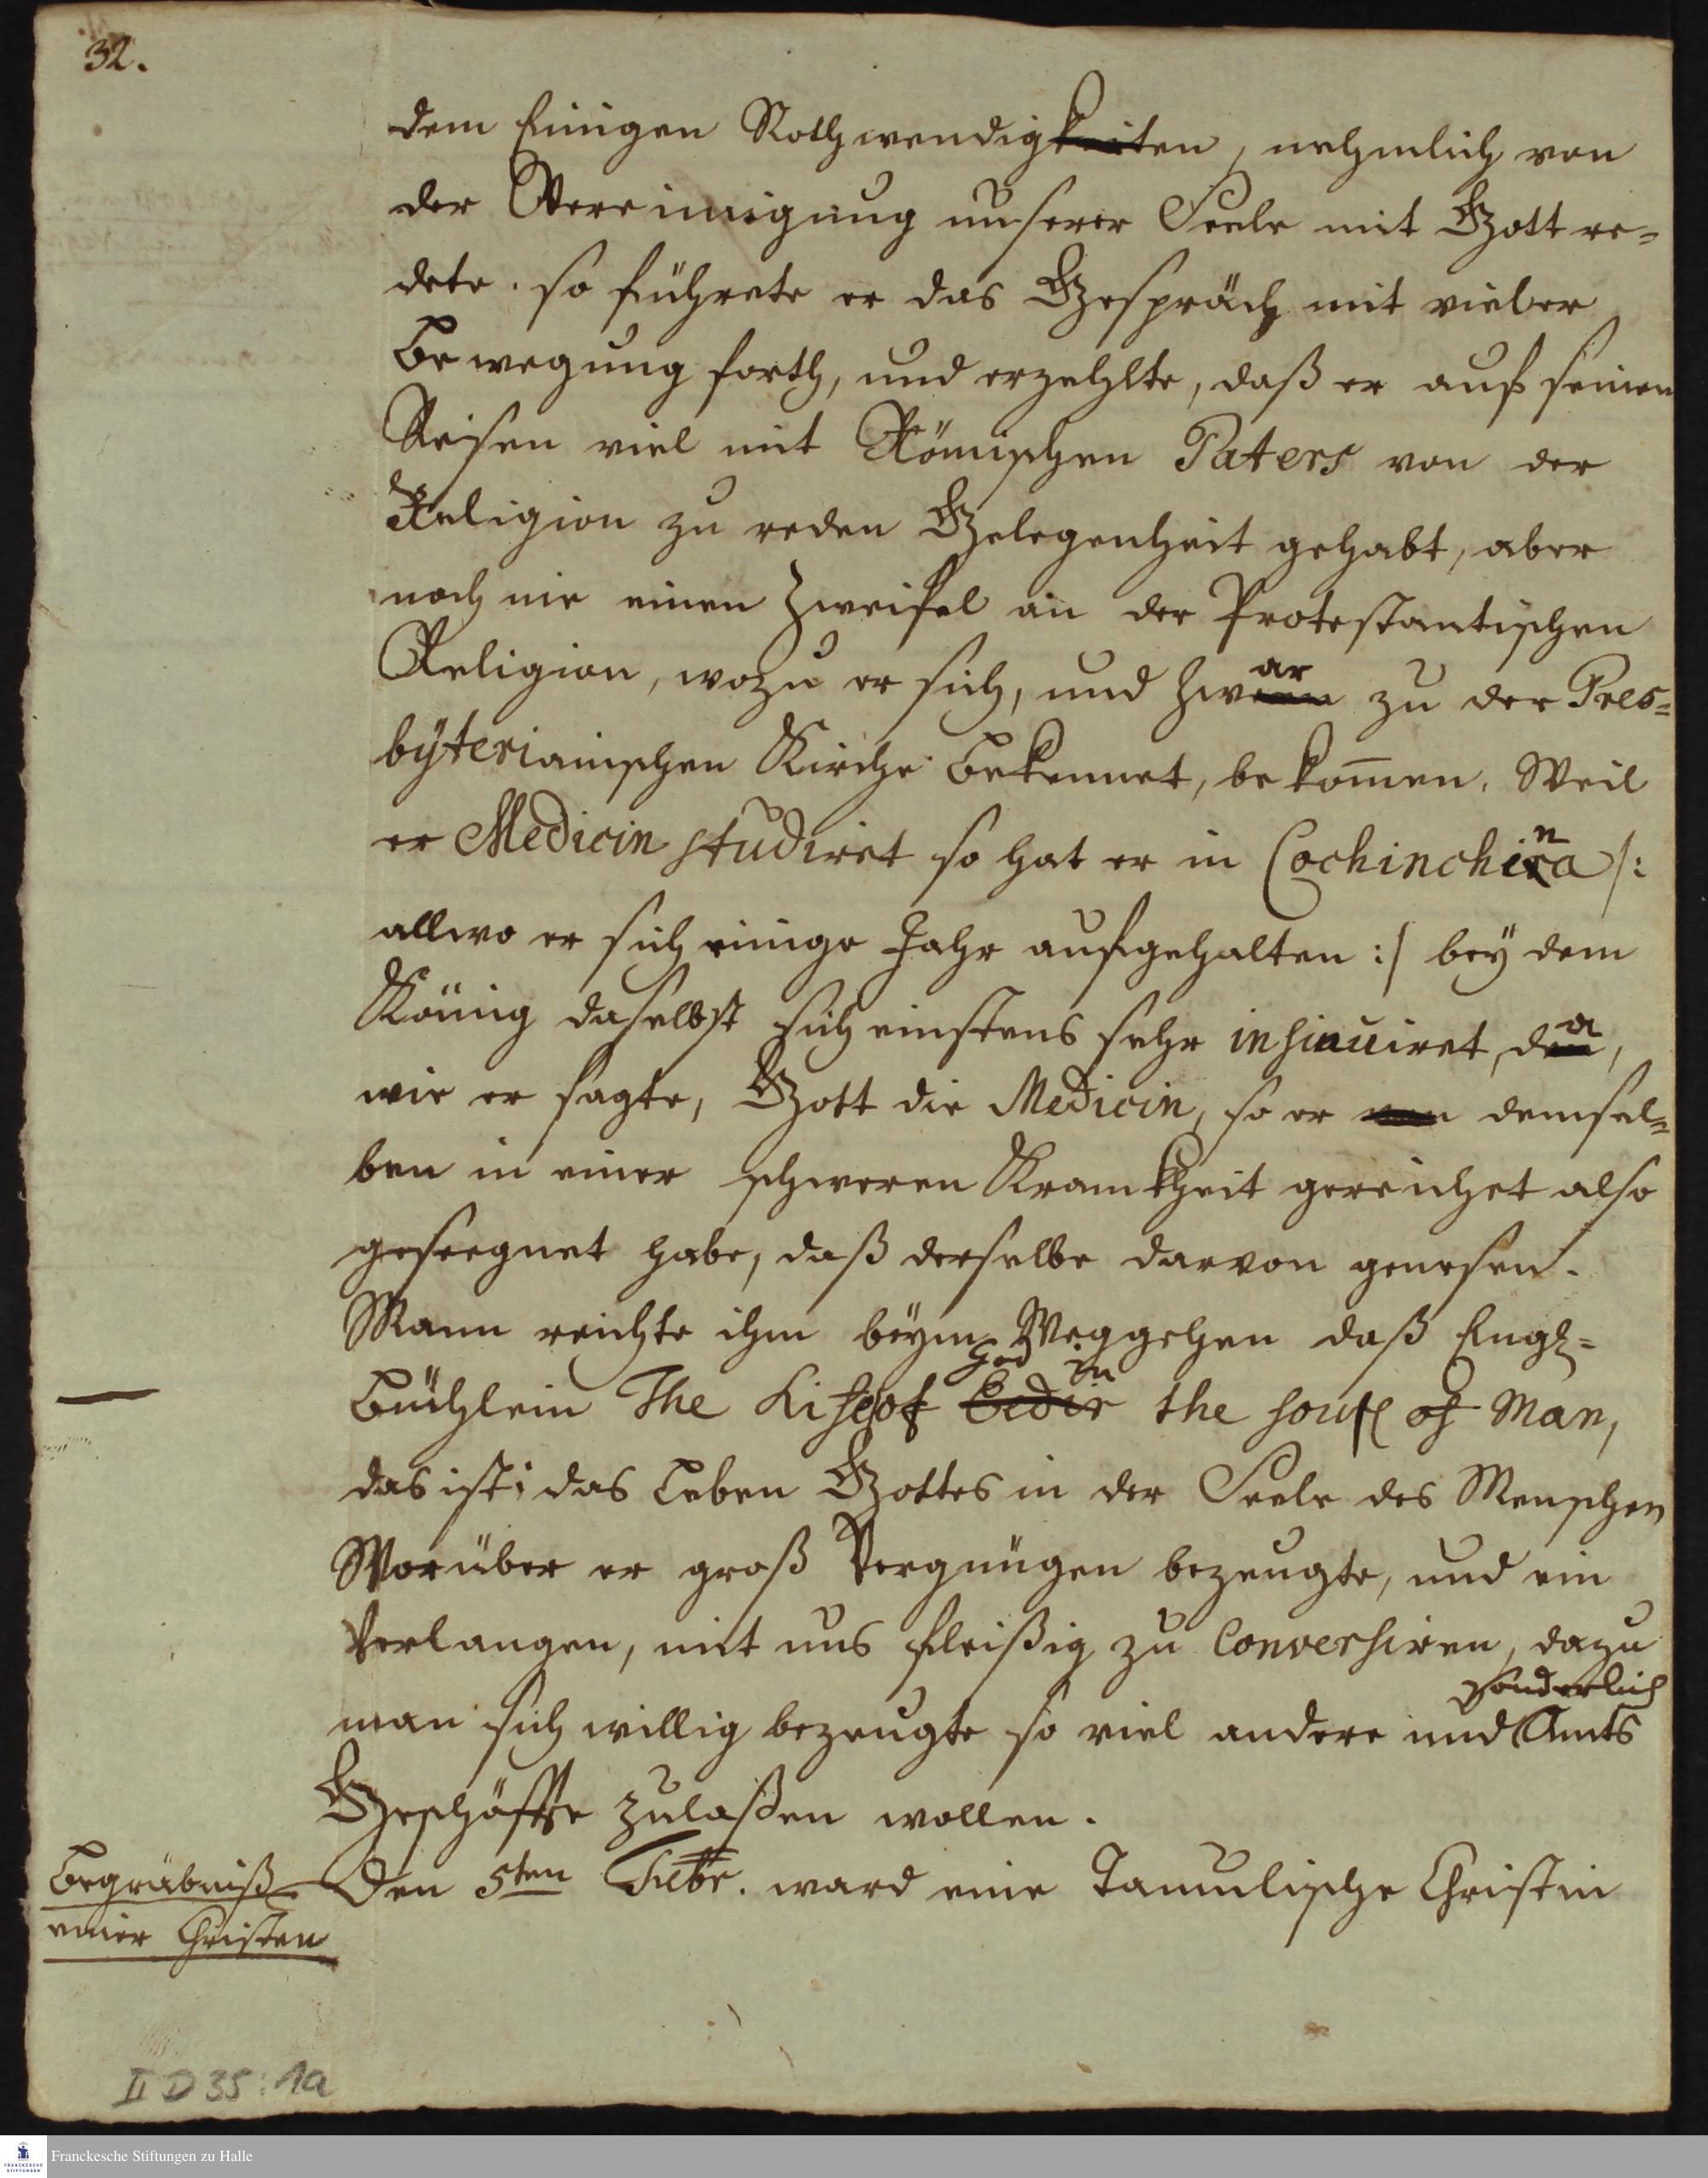 32.
dem Einigen Nothwendigkeiten, nehmlich von
der Vereinigung unserer Seele mit Gott re-
dete. so führete er das Gespräch mit vieler
Bewegung forth, und erzehlte, daß er auf seinen
Reisen viel mit Römischen Paters von der
Religion zu reden Gelegenheit gehabt, aber
noch nie einen Zweifel an der Protestantischen
Religion, wozu er sich, und zwar zu der Pres-
byterianischen Kirche bekennet, bekommen. Weil
er Medicin studiret so hat er in Cochinchina /:
allwo er sich einige Jahr aufgehalten :/ bey dem
König daselbst sich einstens sehr insinuiret, da,
wie er sagte, Gott die Medicin, so er demsel-
ben in einer schweren Krankheit gereichet also
geseegnet habe, daß derselbe darvon genesen.
Mann reichte ihm beym Weggehen daß Engl-
Büchlein The Life of God in the soul of Man,
das ist: das Leben Gottes in der Seele des Menschen
Worüber er groß Vergnügen bezeugte, und ein
Verlangen, mit uns fleißig zu Conversiren, dazu
man sich willig bezeugte so viel andere und sonderlich Amts
Geschäffte zulaßen wollen.
Begräbniß
einer Christen
Den 5ten Febr. ward eine Tamulische Christin
II D 35 : 1a
Franckesche Stiftungen zu Halle
FRANCKESCHE
STIFTUNGEN